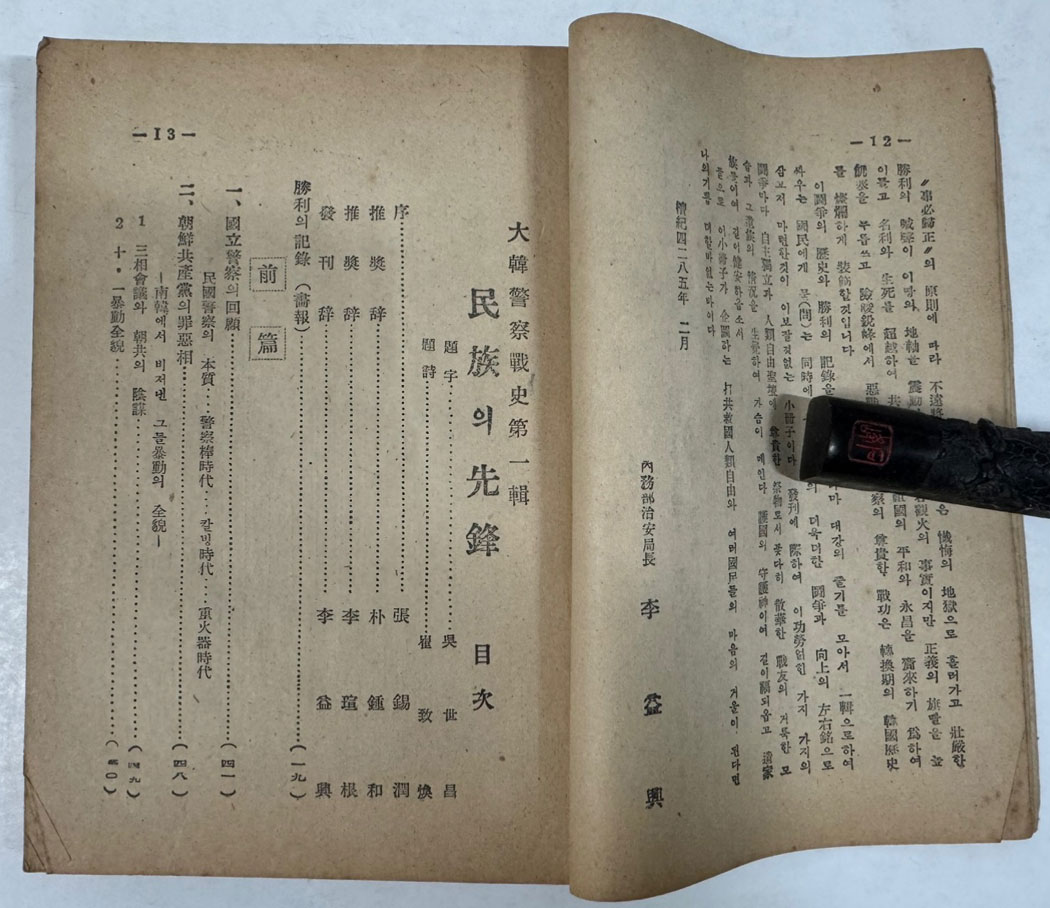 —12—
〃事必歸正〃의 原則에 따라 不遠 懺悔의 地獄으로 흘러가고 壯嚴한
勝利의 喊聲이 이땅의 地軸을 震動 觀火의 事實이지만 正義의 旗빨을 높
이들고 名利와 生死를 超越하여 共 祖國의 平和와 永昌을 齎來하기 爲하여
飢寒을 무릅쓰고 險峻銳峰에서 惡戰 警察의 尊貴한 戰功은 轉換期의 韓國歷史
를 燦爛하게 裝飾할것입니다
이鬪爭의 歷史와 勝利의 記錄을 나마 대강의 줄기를 모아서 一輯으로하여
싸우는 國民에게 묻(問)는 同時에 의 더욱더한 鬪爭과 向上의 左右銘으로
삼고저 마련한것이 이보잘것없는 小冊子이다 發刊에 際하여 가지 가지의
鬪爭마다 自主獨立과 人類自由聖壇에 尊貴한 祭物로서 꽃다히 散華한 戰友의 거룩한 모
습과 그 遺族의 情況을 生覺하여 가슴이 메인다 護國의 守護神이여 길이福되옵고 遺家
族들이여 길이健安하옵소서
끝으로 이小冊子가 企圖하는 打共救國人類自由와 여러國民들의 마음의 거울이 된다면
나의기쁨 더할바없는바이다
檀紀四二八五年 二月
內務部治安局長 李 益 興
—13—
大韓警察戰史第一輯
民族의先鋒 目次
題字……吳世昌
題詩……崔致煥
序……張錫潤
推奬辞……朴鍾和
推奬辞……李瑄根
發刊辞……李益興
勝利의記錄(畵報)……(一九)
前篇
一、國立警察의回顧……(四一)
民國警察의 本質……警察棒時代……칼빙時代……重火器時代
二、朝鮮共産黨의罪惡相……(四八)
—南韓에서 비저낸 그들暴動의 全貌—
1 三相會議와 朝共의 陰謀……(四九)
2 十・一暴動全貌……(五〇)